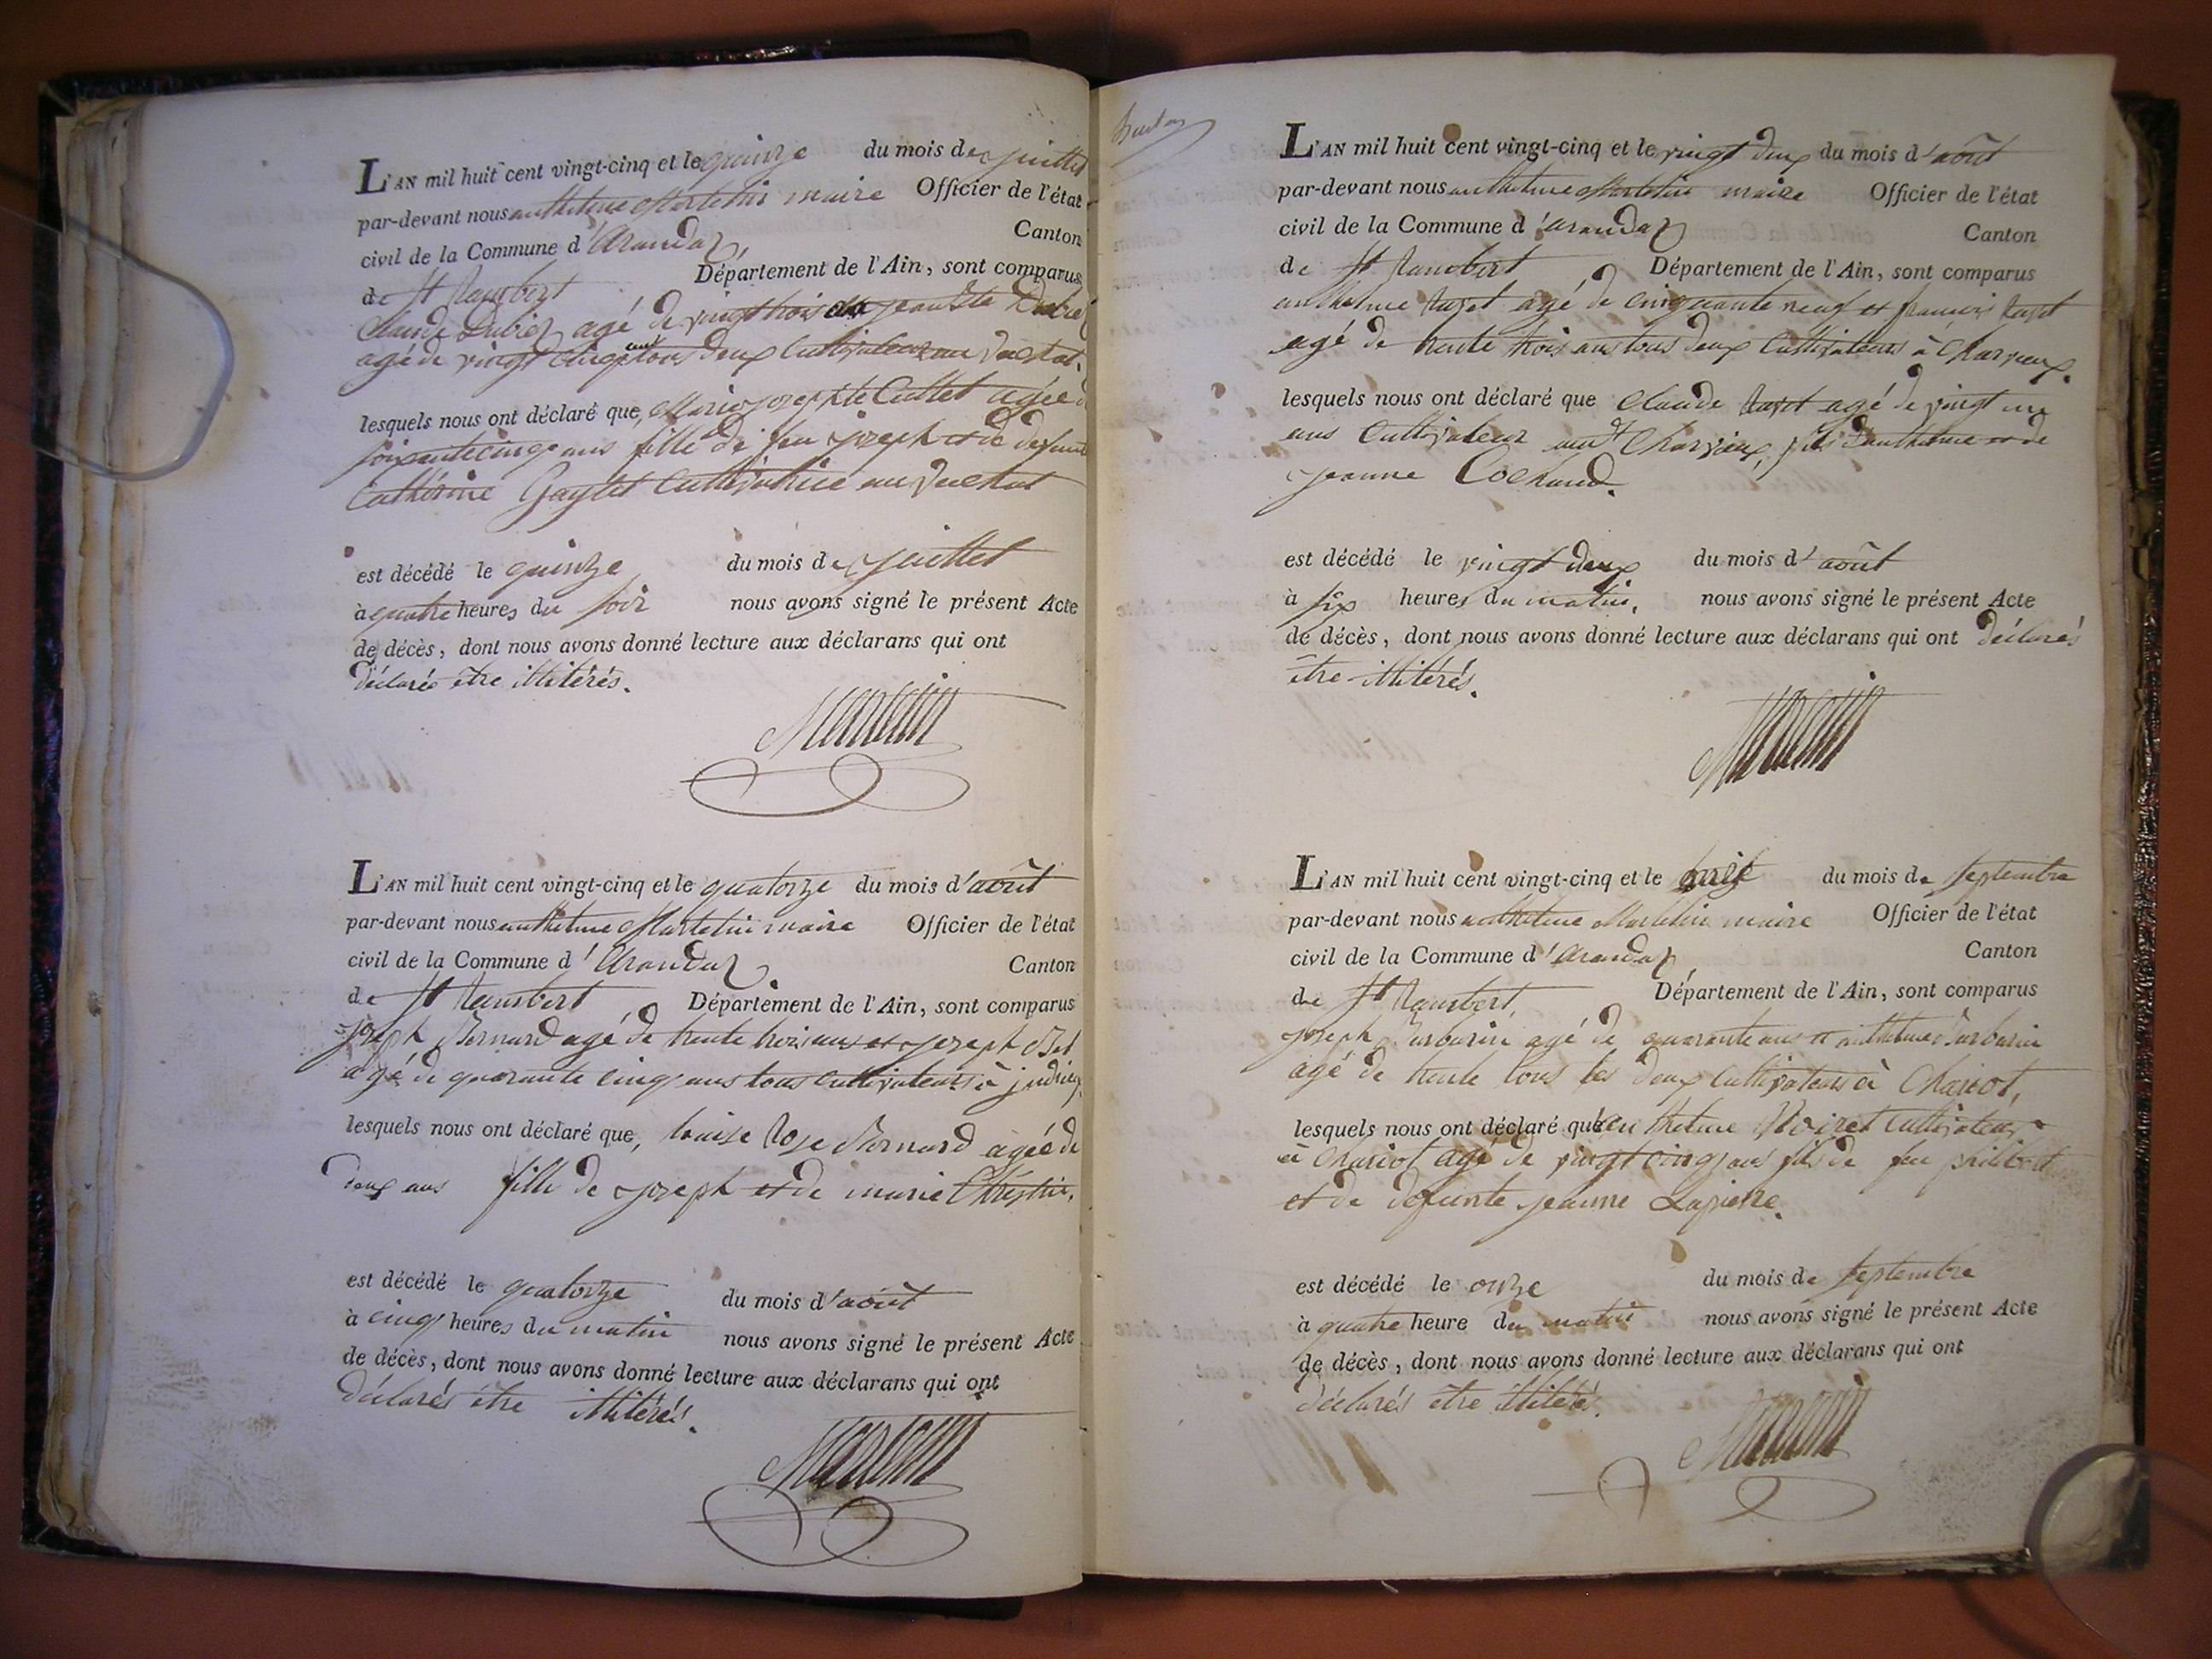 L'AN mil huit cent vingt-cinq et le quinze du mois de juillet
par-devant nous anthelme Martelin maire Officier de l'état
civil de la Commune d'arandaz, Canton
de St Rambert Département de l'Ain, sont comparus
Claude Dubiez agé de vingt trois
agé de vingt cinq ans tous deux Cultivateurs au
lesquels nous ont déclaré que, Marie josephte Cullet agée de
soixante cinq ans fille de feu joseph et de defunte
Cathérine Cultivatrice au
est décédé le quinze du mois de juillet
à quatre heures du soir nous avons signé le présent Acte
de décès, dont nous avons donné lecture aux déclarans qui ont
déclarés être illitérés.
Martelin
L'AN mil huit cent vingt-cinq et le quatorze du mois d'août
par-devant nous anthelme Martelin maire Officier de l'état
civil de la Commune d'Arandaz Canton
de St Rambert Département de l'Ain, sont comparus
joseph Bernard agé de trente trois ans et joseph
agé de quarante cinq ans tous cultivateurs à
lesquels nous ont déclaré que, louise Rose Bernard agée de
deux ans fille de joseph et de marie Chrestin.
est décédé le quatorze du mois d'août
à cinq heures du matin nous avons signé le présent Acte
de décès, dont nous avons donné lecture aux déclarans qui ont
déclarés être illitérés.
Martelin
L'AN mil huit cent vingt-cinq et le vingt deux du mois d'août
par-devant nous anthelme Martelin maire Officier de l'état
civil de la Commune d'arandaz Canton
de St Rambert Département de l'Ain, sont comparus
anthelme agé de cinquante neuf et francois
agé de trente trois ans tous deux Cultivateurs à Charvieux.
lesquels nous ont déclaré que Claude agé de vingt un
ans Cultivateur Charvieux, fils d'anthelme et de
jeanne Cochand.
est décédé le vingt deux du mois d'août
à six heures du matin, nous avons signé le présent Acte
de décès, dont nous avons donné lecture aux déclarans qui ont déclarés
être illitérés.
Martelin
L'AN mil huit cent vingt-cinq et le du mois de septembre
par-devant nous anthelme Martelin maire Officier de l'état
civil de la Commune d'arandaz Canton
de St Rambert, Département de l'Ain, sont comparus
joseph Burbarin agé de quarante ans et anthelme Burbarin
agé de trente tous les deux cultivateurs à Chariot,
lesquels nous ont déclaré que anthelme Noiret cultivateur
à Chariot agé de vingt cinq ans fils de feu philibert
et de defunte jeanne Lapierre.
est décédé le onze du mois de septembre
à quatre heure du matin nous avons signé le présent Acte
de décès, dont nous avons donné lecture aux déclarans qui ont
déclarés être illitérés.
Martelin